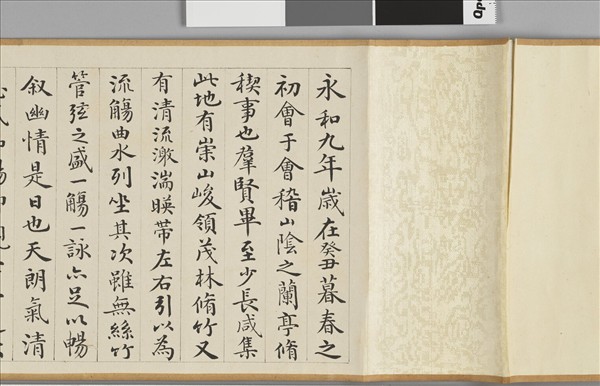 永和九年歲在癸丑暮春之
初會于會稽山陰之蘭亭脩
稧事也羣賢畢至少長咸集
此地有崇山峻領茂林脩竹又
有清流激湍暎帶左右引以為
流觴曲水列坐其次雖無絲竹
管弦之盛一觴一詠亦足以暢
叙幽情是日也天朗氣清